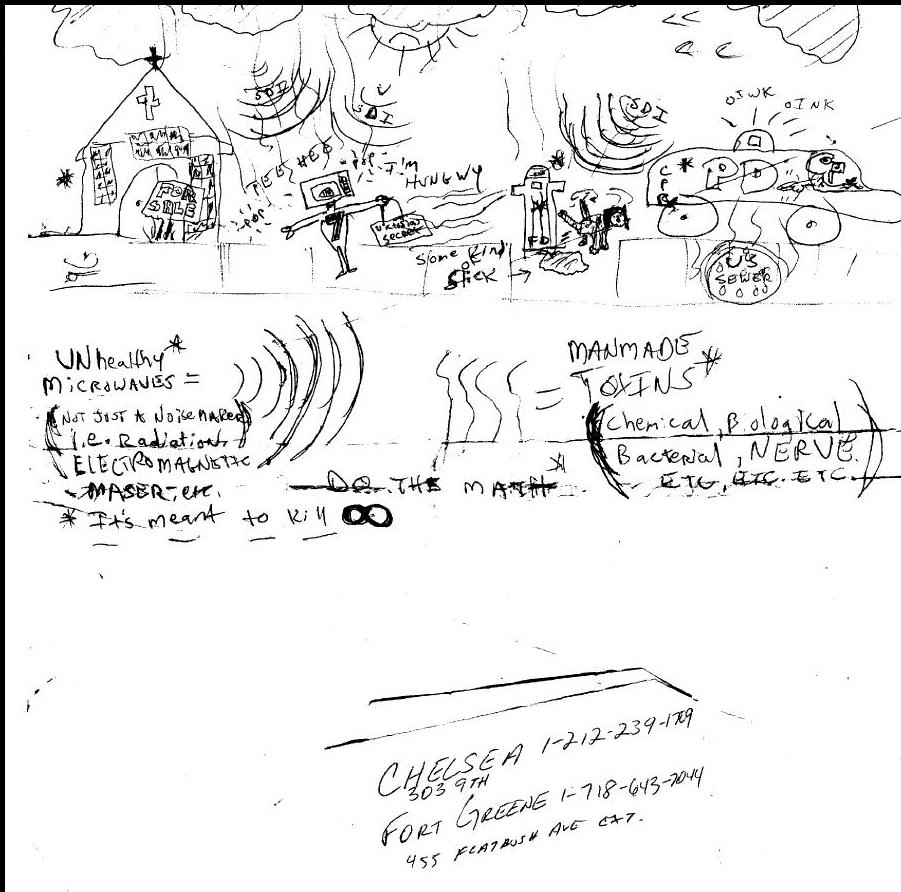 SDI
SDI
SDI
OINK
OINK
TEE HEE
POP
I'M
HUNGWY
POP
FOR
SALE
SECRET
Some kind
of
stick
FD
CPR
US
SEWER
UNhealthy*
MICROWAVES =
(NOT JUST A NOISEMAKER)
i.e. Radiation,
ELECTROMAGNETIC
MASER, etc.
* It's meant to kill
DO THE MATH
= MANMADE
TOXINS*
(Chemical, Biological,
Bacterial, NERVE.
ETC, ETC. ETC.
CHELSEA 1-212-239-1709
303 9TH
FORT GREENE 1-718-643-7044
455 FLATBUSH AVE EXT.